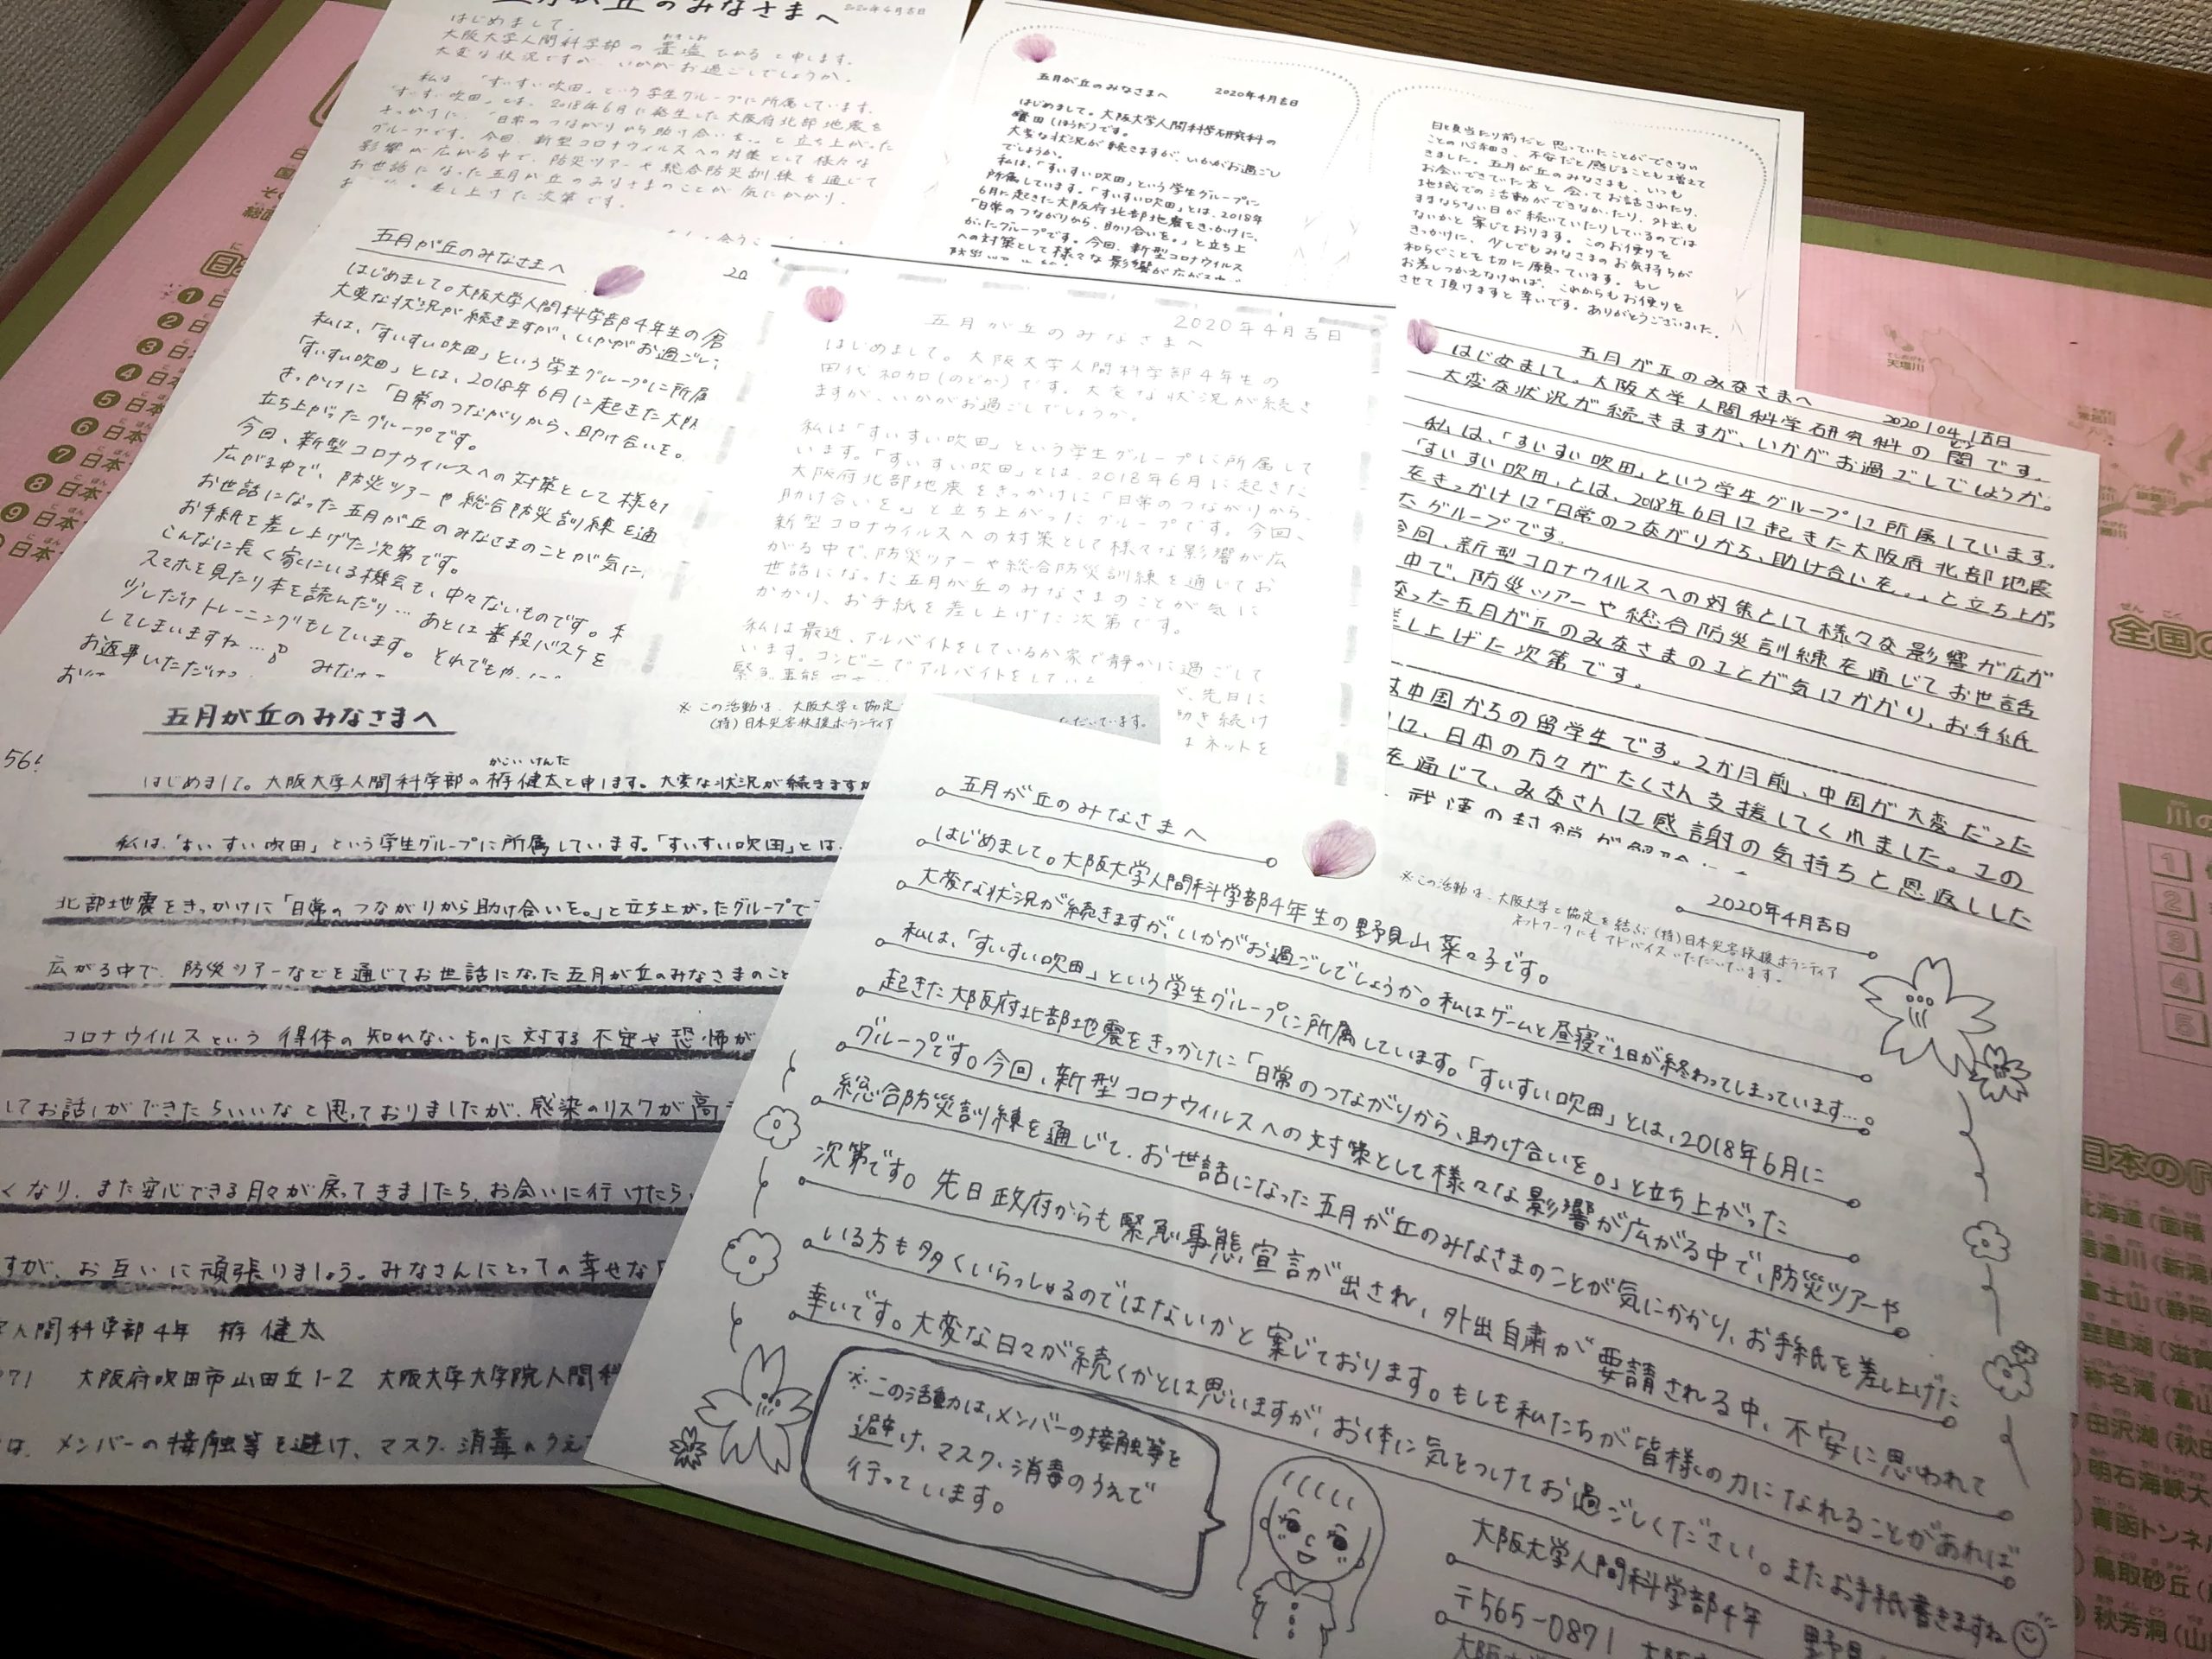 五月が丘のみなさまへ
2020年4月吉日
はじめまして。
大阪大学人間科学部の置塩ひかると申します。
大変な状況ですが、いかがお過ごしでしょうか。
私は、「すいすい吹田」という学生グループに所属しています。
「すいすい吹田」とは、2018年6月に発生した大阪府北部地震を
きっかけに、「日常のつながりから助け合いを。」と立ち上がった
グループです。今回、新型コロナウイルスへの対策として様々な
影響が広がる中で、防災ツアーや総合防災訓練を通じて
お世話になった五月が丘のみなさまのことが気にかかり、
差し上げた次第です。
五月が丘のみなさまへ
2020年4月吉日
はじめまして。大阪大学人間科学研究科の
(ほうだ)です。
大変な状況が続きますが、いかがお過ごし
でしょうか。
私は、「すいすい吹田」という学生グループに
所属しています。「すいすい吹田」とは、2018年
6月に起きた大阪府北部地震をきっかけに、
「日常のつながりから、助け合いを。」と立ち上
がったグループです。今回、新型コロナウイルス
への対策として様々な影響が広がる中
日と具当たり前だと思っていたことができない
ことの心細さ、不安だと感じることも増えて
きました。五月が丘のみなさまも、いつも
お会いできていた方と会ってお話されたり、
地域での活動ができなかったり、外出も
ままならない日が続いていたりしているのでは
ないかと案じております。このお便りを
きっかけに、少しでもみなさまのお気持ちが
和らぐことを切に願っています。もし
お差しつかえなければ、これからもお便りを
させて頂けますと幸いです。ありがとうございました。
五月が丘のみなさまへ
20
はじめまして。大阪大学人間科学部4年生の倉
大変な状況が続きますが、いかがお過ごし
私は、「すいすい吹田」という学生グループに所属
「すいすい吹田」とは、2018年6月に起きた大阪
きっかけに「日常のつながりから、助け合いを。
立ち上がったグループです。
今回、新型コロナウイルスへの対策として様々
広がる中で、防災ツアーや総合防災訓練を通
お世話になった五月が丘のみなさまのことが気に
お手紙を差し上げた次第です。
こんなに長く家にいる機会も、中々ないものです。私
スマホを見たり本を読んだり…あとは普段バスケを
少しだけトレーニングもしています。それでもや
してしまいますね…。みなさ
お返事いただけ
五月が丘のみなさまへ
2020年4月吉日
はじめまして。大阪大学人間科学部4年生の
田代和加(のどか)です。大変な状況が続き
ますが、いかがお過ごしでしょうか。
私は「すいすい吹田」という学生グループに所属して
います。「すいすい吹田」とは2018年6月に起きた
大阪府北部地震をきっかけに「日常のつながりから
助け合いを。」と立ち上がったグループです。今回、
新型コロナウイルスへの対策として様々な影響が広
がる中で、防災ツアーや総合防災訓練を通じてお
世話になった五月が丘のみなさまのことが気に
かかり、お手紙を差し上げた次第です。
私は最近、アルバイトをしているか家で静かに過ごして
います。コンビニでアルバイトをしてい
先日に
働き続け
はネットを
※この活動は、大阪大学と協定
(特)日本災害救援ボランティア
ただいています。
五月が丘のみなさまへ
2020/04/吉日
はじめまして。大阪大学人間科学研究科の閻です。
大変な状況が続きますが、いかがお過ごしでしょうか。
私は、「すいすい吹田」という学生グループに所属しています。
「すいすい吹田」とは、2018年6月に起きた大阪府北部地震
をきっかけに「日常のつながりから、助け合いを。」と立ち上がっ
たグループです。
今回、新型コロナウイルスへの対策として様々な影響が広が
中で、防災ツアーや総合防災訓練を通じてお世話
なった五月が丘のみなさまのことが気にかかり、お手紙
差し上げた次第です。
は中国からの留学生です。2か月前、中国が大変だった
に、日本の方々がたくさん支援してくれました。この
を通じて、みなさんに感謝の気持ちと恩返しした
武漢の封鎖が解除
※この活動は、大阪大学と協定を結ぶ(特)日本災害救援ボランティア
ネットワークにもアドバイスいただいています。
五月が丘のみなさまへ
56
かこいけんた
はじめまして。大阪大学人間科学部の栫健太と申します。大変な状況が続きますが
私は、「すいすい吹田」という学生グループに所属しています。「すいすい吹田」とは、
北部地震をきっかけに「日常のつながりから助け合いを。」と立ち上がったグループで
広がる中で、防災ツアーなどを通じてお世話になった五月が丘のみなさまのこと
コロナウイルスという得体の知れないものに対する不安や恐怖が
してお話しができたらいいなと思っておりましたが、感染のリスクが高
くなり、また安心できる日々が戻ってきましたら、お会いに行けたら
すが、お互いに頑張りましょう。みなさんにとっての幸せな
人間科学部4年 栫健太
71 大阪府吹田市山田丘1-2 大阪大学大学院人間科
は、メンバーの接触等を避け、マスク、消毒のうえで
五月が丘のみなさまへ
2020年4月吉日
はじめまして。大阪大学人間科学部4年生の野見山菜々子です。
大変な状況が続きますが、いかがお過ごしでしょうか。私はゲームと昼寝で1日が終わってしまっています…。
私は、「すいすい吹田」という学生グループに所属しています。「すいすい吹田」とは、2018年6月に
起きた大阪府北部地震をきっかけに「日常のつながりから、助け合いを。」と立ち上がった
グループです。今回、新型コロナウイルスへの対策として様々な影響が広がる中で、防災ツアーや
総合防災訓練を通じて、お世話になった五月が丘のみなさまのことが気にかかり、お手紙を差し上げた
次第です。先日政府からも緊急事態宣言が出され、外出自粛が要請される中、不安に思われて
いる方も多くいらっしゃるのではないかと案じております。もしも私たちが皆様の力になれることがあれば
幸いです。大変な日々が続くかとは思いますが、お体に気をつけてお過ごしください。またお手紙書きますね
※この活動は、メンバーの接触等を
避け、マスク、消毒のうえで
行っています。
大阪大学人間科学部4年 野見
〒565-0871 大阪
大阪大学
天塩川
全国の
ぜんこく
川の
1
2
3
4
5
日本の
北海道(面積
信濃川(新潟
富士山(静岡
琵琶湖(滋賀
称名滝(富山
田沢湖(秋田
明石海峡大
青函トンネル
鳥取砂丘(
秋芳洞(山
1 日
2 日
3 日
4 日本
5 日本
6 日本
7 日本
8 日本
9 日本
日本